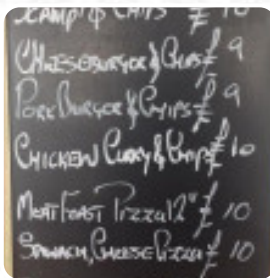 Scampi & Chips £ 10
Cheeseburger & Chips £ 9
Pork Burger & Chips £ 9
Chicken Curry & Chips £ 10
Meat Feast Pizza 12" £ 10
Spinach, Cheese Pizza £ 10